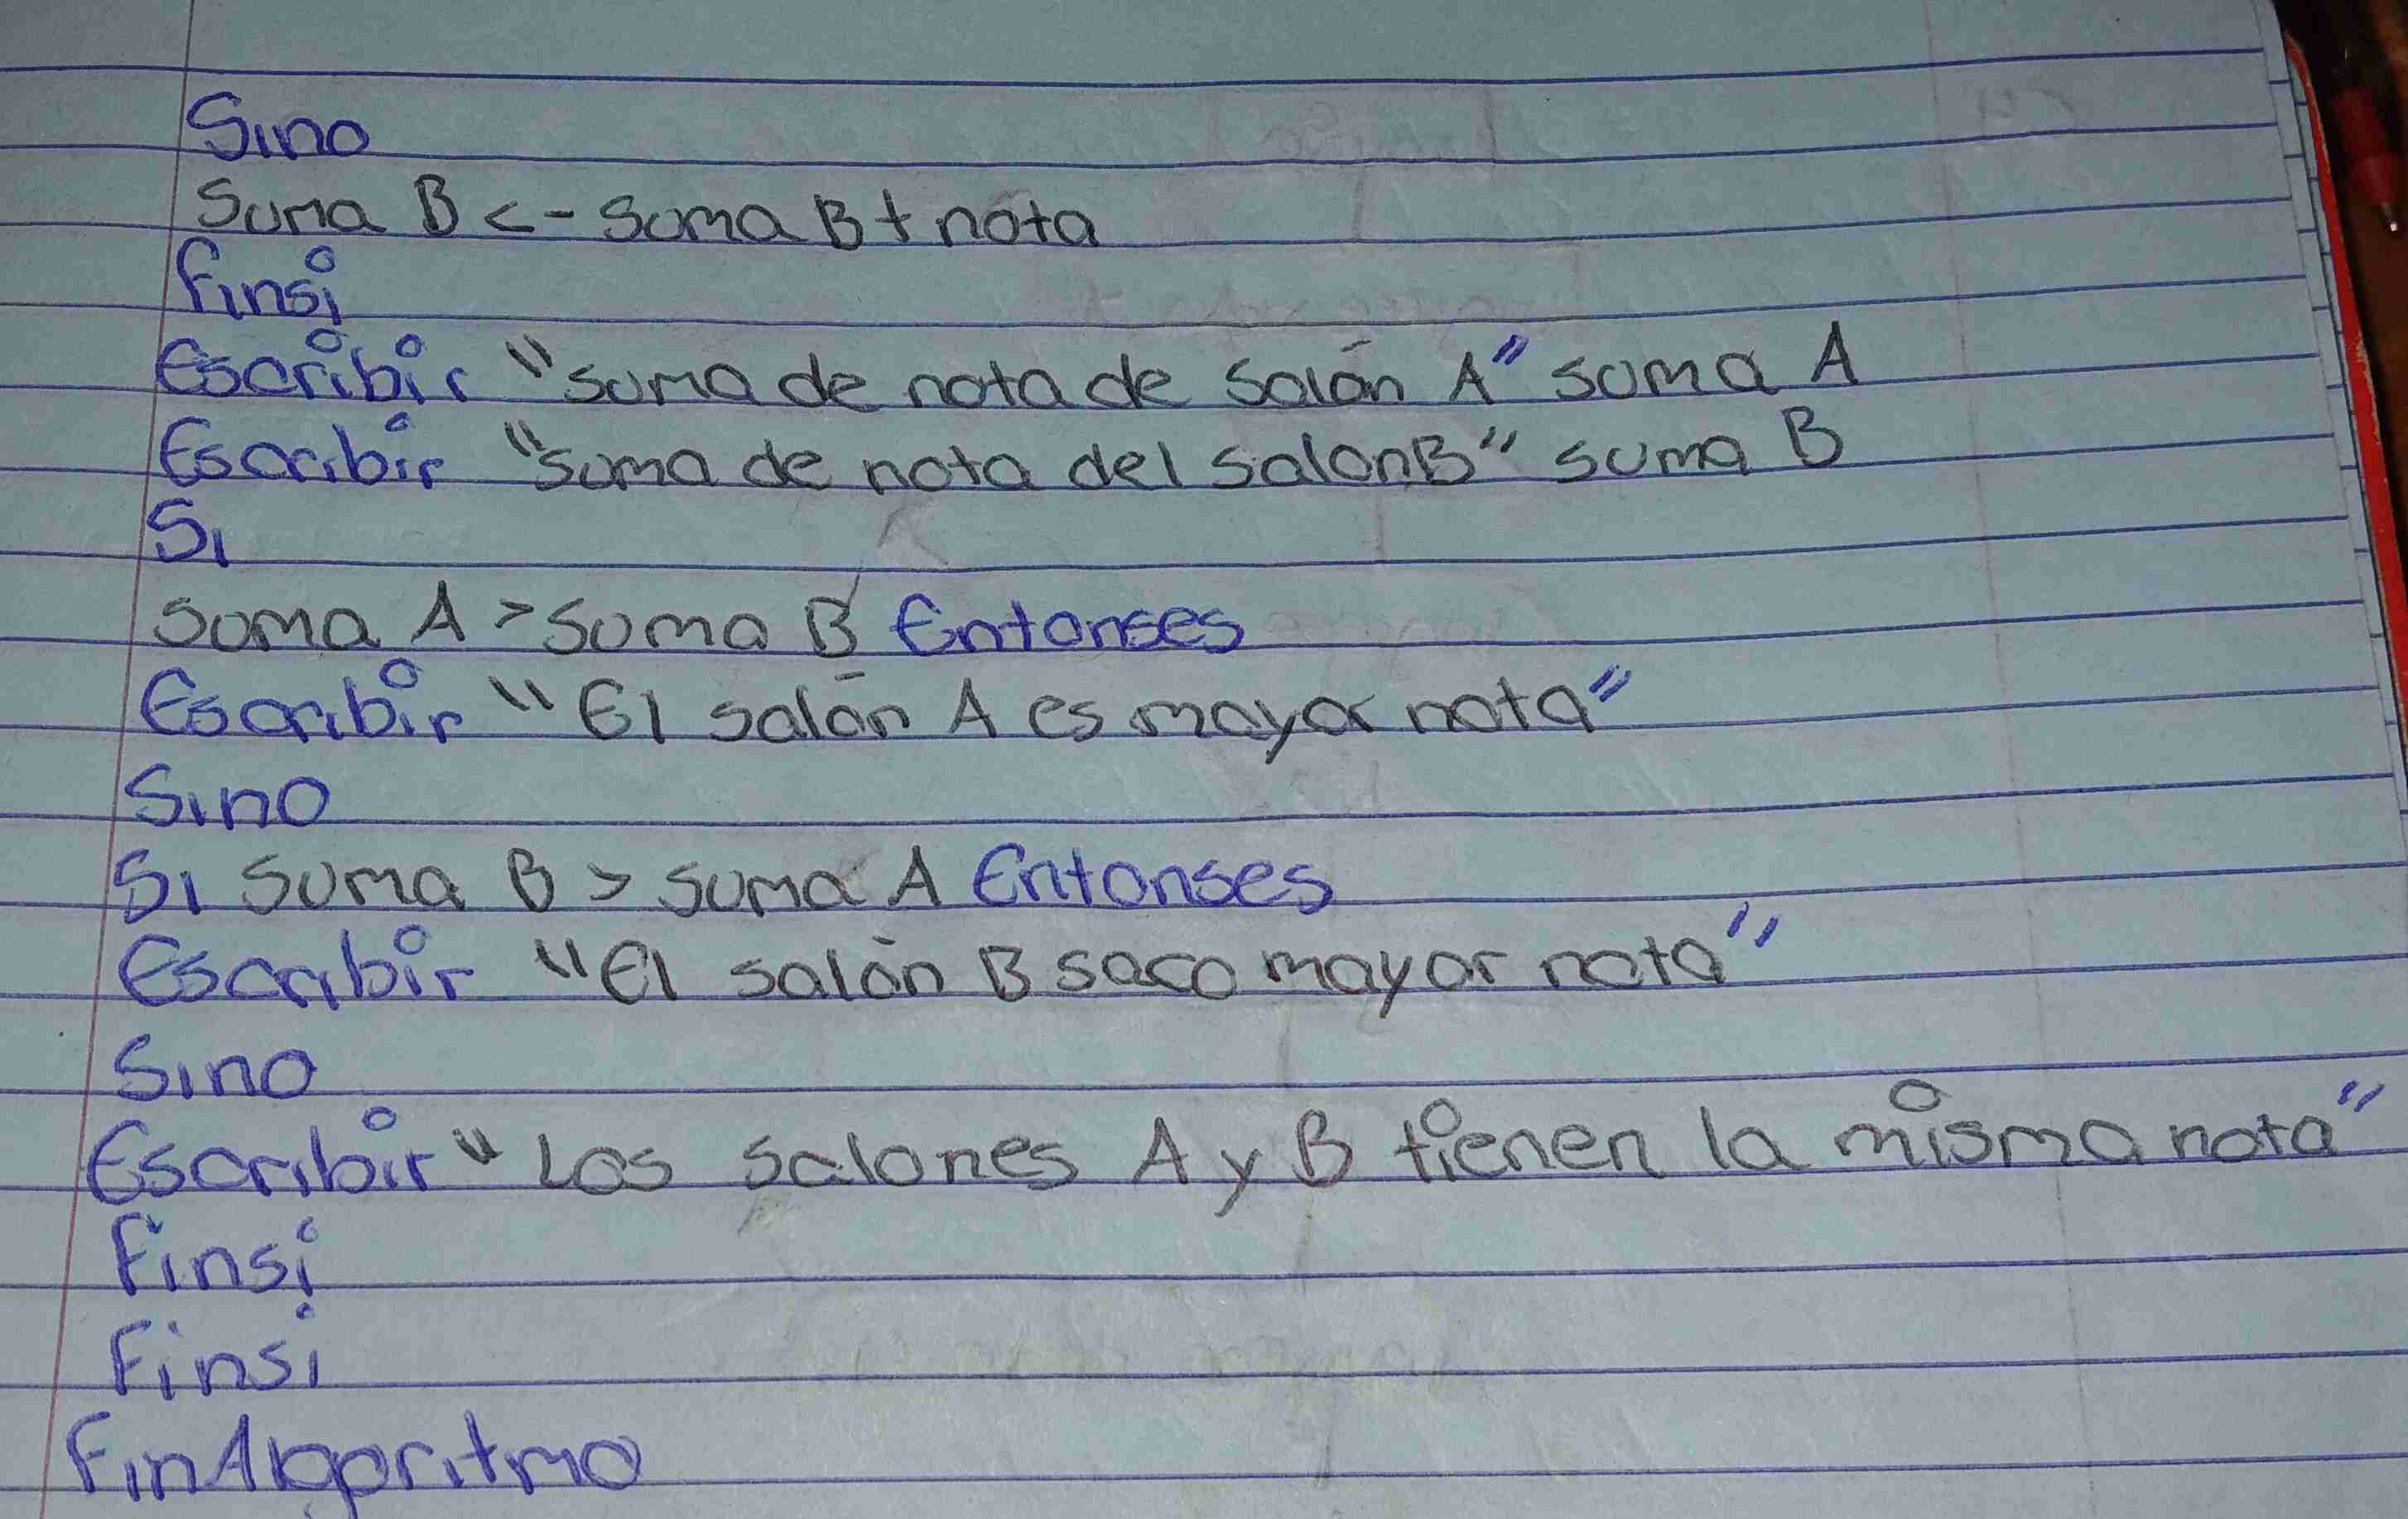 Sino
Suma B <- Suma B + nota
Finsi
Escribir "suma de nota de salón A" suma A
Escribir "suma de nota del salon B" suma B
Si
suma A > suma B Entonses
Escribir "El salón A es mayor nota"
Sino
Si suma B > suma A Entonses
Escribir "El salón B saco mayor nota"
Sino
Escribir "Los salones A y B tienen la misma nota"
Finsi
Finsi
FinAlgoritmo